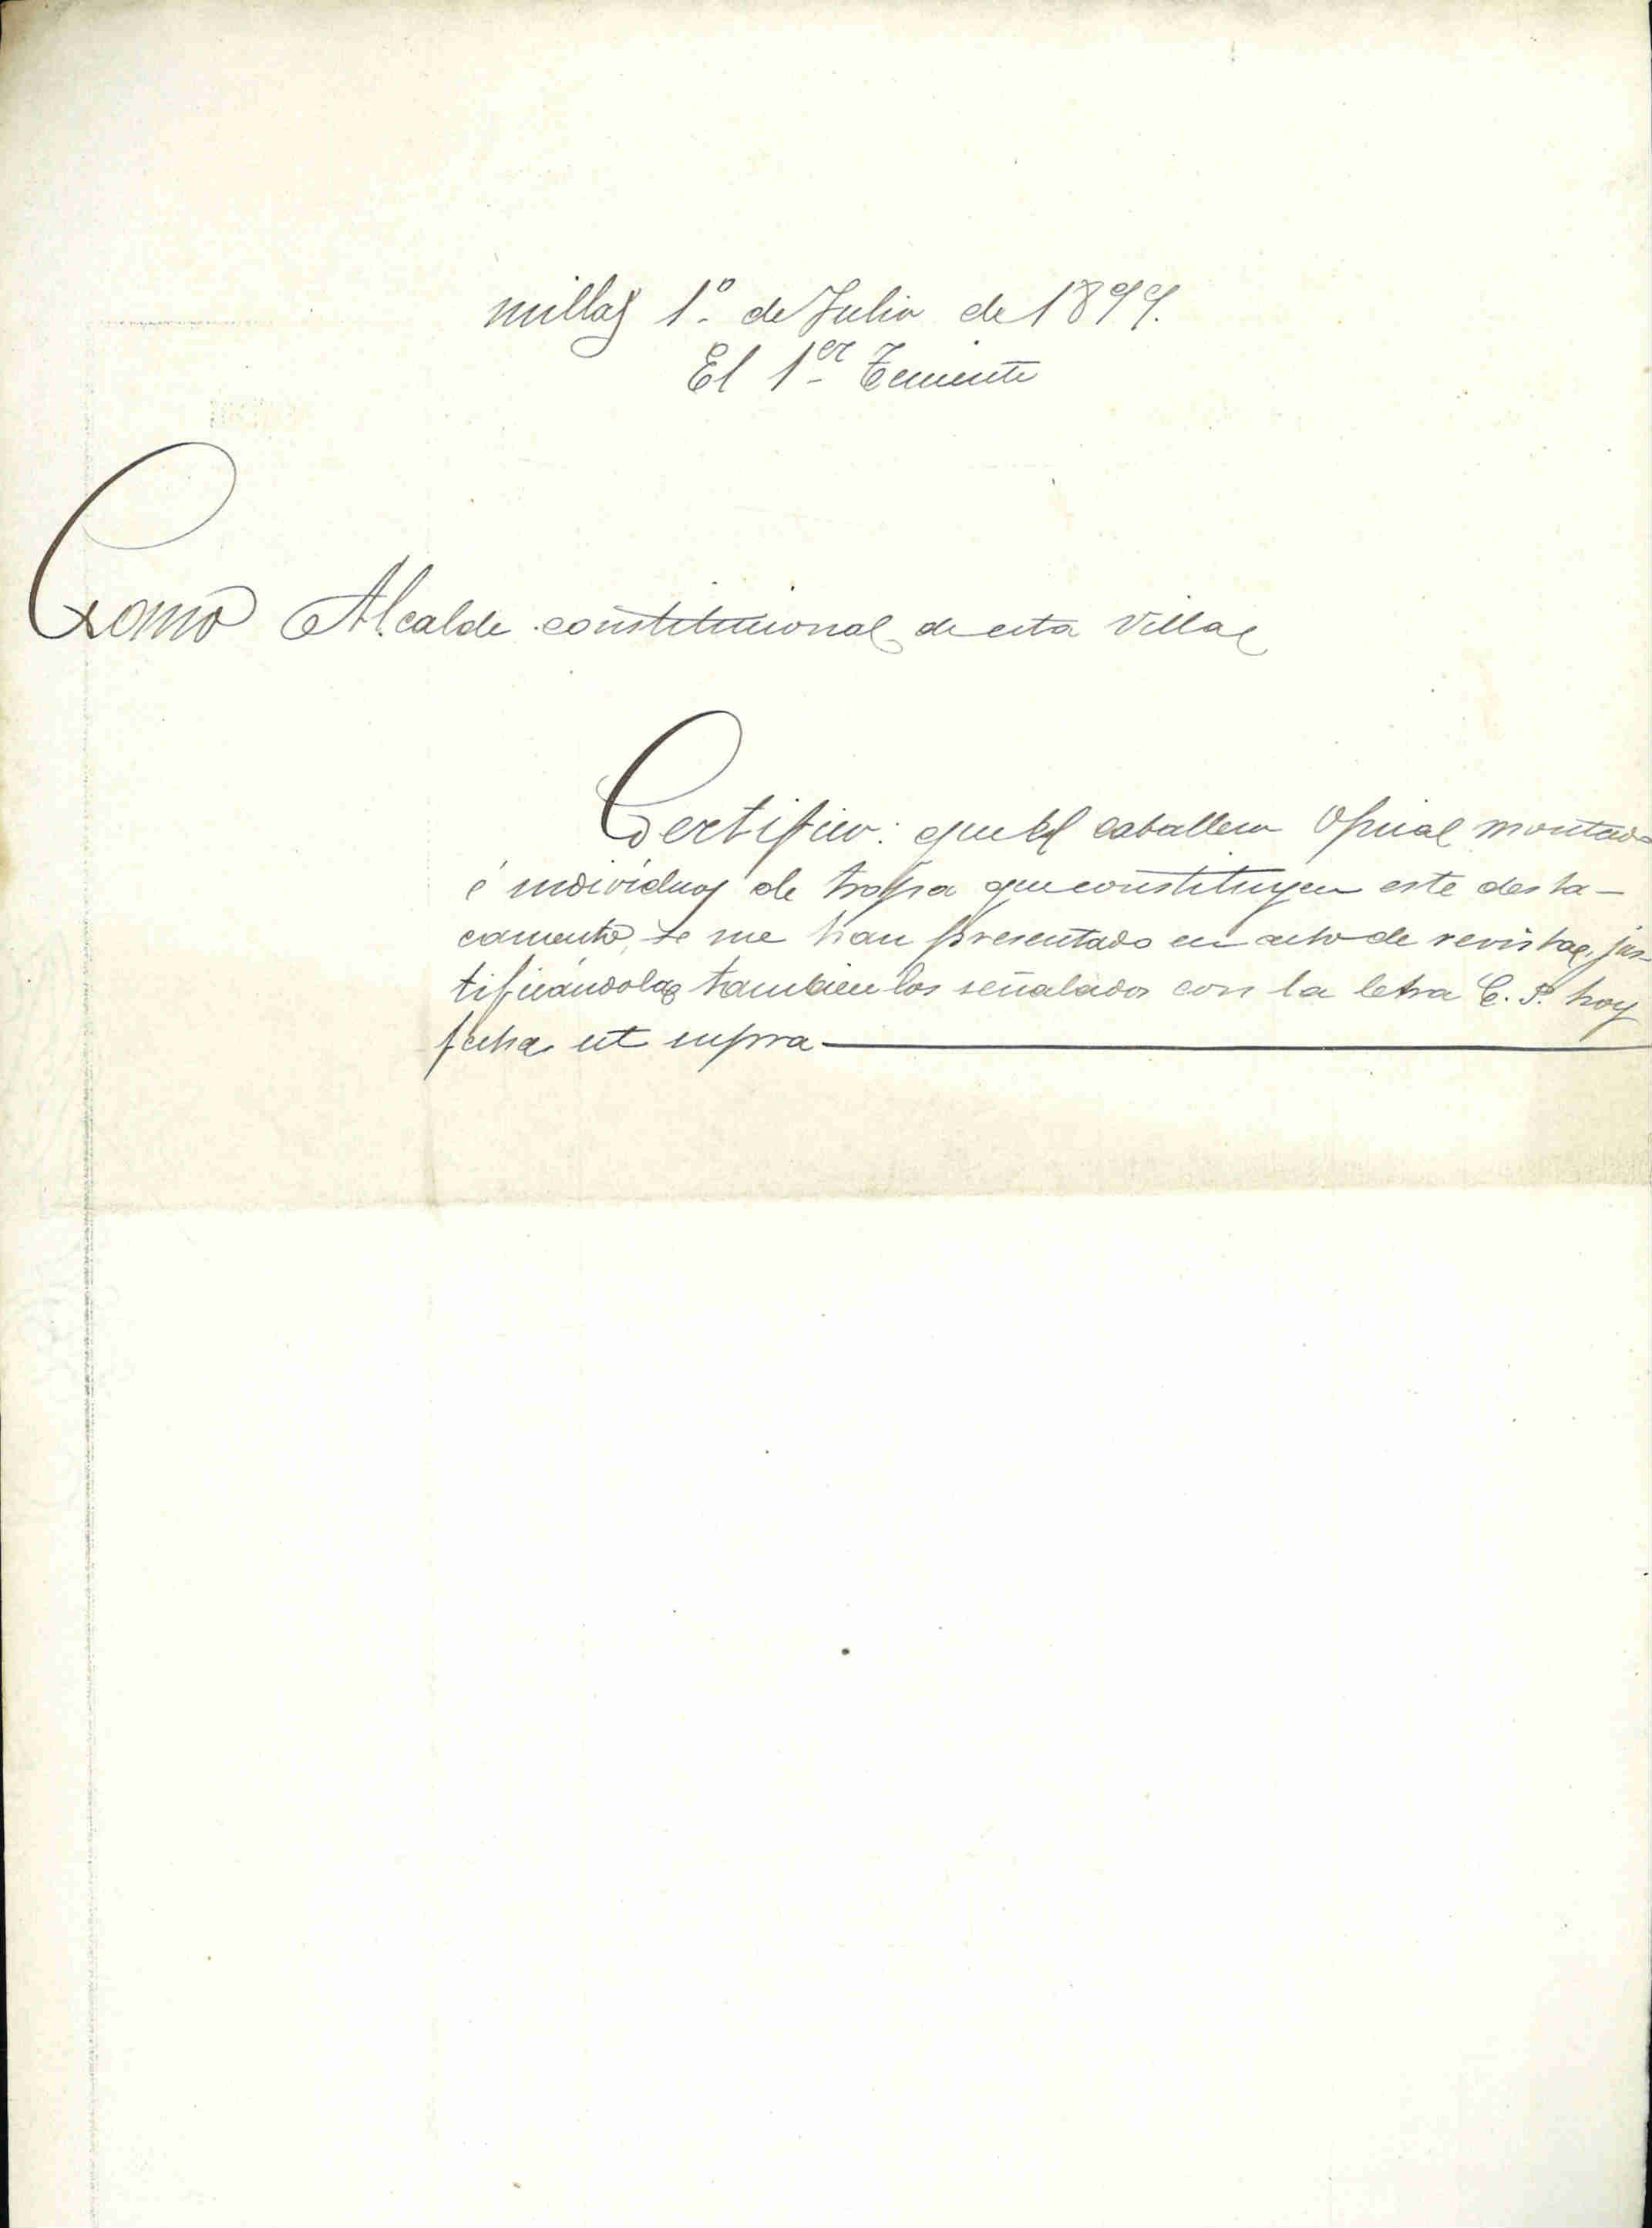 millas 1º de Julio de 1899.
El 1er Teniente
Como Alcalde constitucional de esta villa
Certifico: que el caballero Oficial montado
é individuos de tropa que constituyen este desta-
camento, se me han presentado en acto de revista, jus-
tificándola también los señalados con la letra C. P. hoy
fecha ut supra